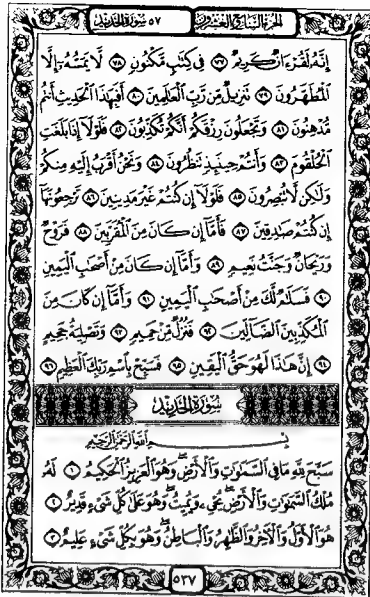 الجزء السابع والعشرون ٥٧ سورة الحديد
إِنَّهُ لَقُرْءَانٌ كَرِيمٌ ۝٧٧ فِي كِتَٰبٍ مَّكْنُونٍ ۝٧٨ لَّا يَمَسُّهُۥٓ إِلَّا
ٱلْمُطَهَّرُونَ ۝٧٩ تَنزِيلٌ مِّن رَّبِّ ٱلْعَٰلَمِينَ ۝٨٠ أَفَبِهَٰذَا ٱلْحَدِيثِ أَنتُم
مُّدْهِنُونَ ۝٨١ وَتَجْعَلُونَ رِزْقَكُمْ أَنَّكُمْ تُكَذِّبُونَ ۝٨٢ فَلَوْلَآ إِذَا بَلَغَتِ
ٱلْحُلْقُومَ ۝٨٣ وَأَنتُمْ حِينَئِذٍ تَنظُرُونَ ۝٨٤ وَنَحْنُ أَقْرَبُ إِلَيْهِ مِنكُمْ
وَلَٰكِن لَّا تُبْصِرُونَ ۝٨٥ فَلَوْلَآ إِن كُنتُمْ غَيْرَ مَدِينِينَ ۝٨٦ تَرْجِعُونَهَآ
إِن كُنتُمْ صَٰدِقِينَ ۝٨٧ فَأَمَّآ إِن كَانَ مِنَ ٱلْمُقَرَّبِينَ ۝٨٨ فَرَوْحٌ
وَرَيْحَانٌ وَجَنَّتُ نَعِيمٍ ۝٨٩ وَأَمَّآ إِن كَانَ مِنْ أَصْحَٰبِ ٱلْيَمِينِ
۝٩٠ فَسَلَٰمٌ لَّكَ مِنْ أَصْحَٰبِ ٱلْيَمِينِ ۝٩١ وَأَمَّآ إِن كَانَ مِنَ
ٱلْمُكَذِّبِينَ ٱلضَّآلِّينَ ۝٩٢ فَنُزُلٌ مِّنْ حَمِيمٍ ۝٩٣ وَتَصْلِيَةُ جَحِيمٍ
۝٩٤ إِنَّ هَٰذَا لَهُوَ حَقُّ ٱلْيَقِينِ ۝٩٥ فَسَبِّحْ بِٱسْمِ رَبِّكَ ٱلْعَظِيمِ ۝٩٦
سورة الحديد
بِسْمِ ٱللَّهِ ٱلرَّحْمَٰنِ ٱلرَّحِيمِ
سَبَّحَ لِلَّهِ مَا فِي ٱلسَّمَٰوَٰتِ وَٱلْأَرْضِ وَهُوَ ٱلْعَزِيزُ ٱلْحَكِيمُ ۝١ لَهُۥ
مُلْكُ ٱلسَّمَٰوَٰتِ وَٱلْأَرْضِ يُحْيِۦ وَيُمِيتُ وَهُوَ عَلَىٰ كُلِّ شَيْءٍ قَدِيرٌ ۝٢
هُوَ ٱلْأَوَّلُ وَٱلْءَاخِرُ وَٱلظَّٰهِرُ وَٱلْبَاطِنُ وَهُوَ بِكُلِّ شَيْءٍ عَلِيمٌ ۝٣
٥٣٧